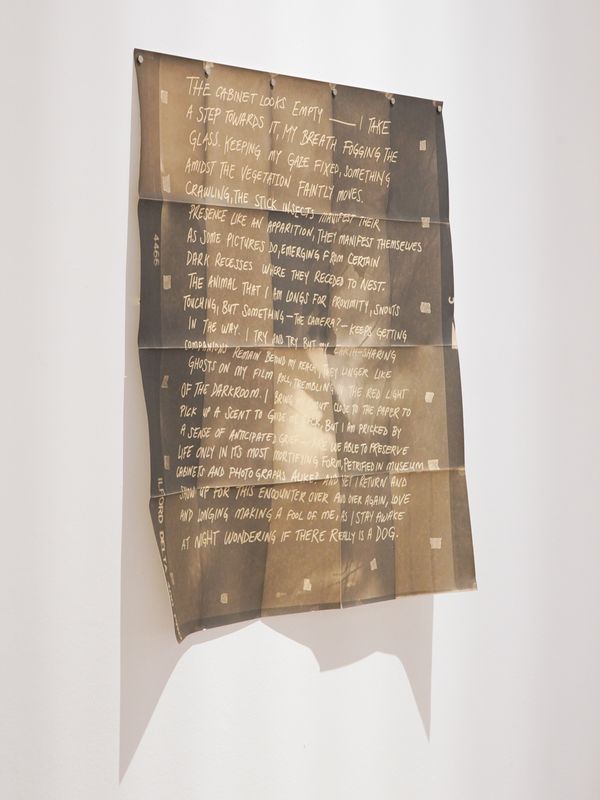 THE CABINET LOOKS EMPTY — I TAKE
A STEP TOWARDS IT, MY BREATH FOGGING THE
GLASS. KEEPING MY GAZE FIXED, SOMETHING
AMIDST THE VEGETATION FAINTLY MOVES.
CRAWLING, THE STICK INSECTS MANIFEST THEIR
PRESENCE LIKE AN APPARITION, THEY MANIFEST THEMSELVES
AS SOME PICTURES DO, EMERGING FROM CERTAIN
DARK RECESSES WHERE THEY RECEDED TO NEST.
THE ANIMAL THAT I AM LONGS FOR PROXIMITY, SNOUTS
TOUCHING, BUT SOMETHING — THE CAMERA? — KEEPS GETTING
IN THE WAY. I TRY AND TRY BUT MY EARTH-SHARING
COMPANIONS REMAIN BEHIND MY REACH, THEY LINGER LIKE
GHOSTS ON MY FILM ROLL, TREMBLING IN THE RED LIGHT
OF THE DARKROOM. I BRING SNOUT CLOSE TO THE PAPER TO
PICK UP A SCENT TO GUIDE ME BACK, BUT I AM PRICKED BY
A SENSE OF ANTICIPATED GRIEF — ARE WE ABLE TO PRESERVE
LIFE ONLY IN ITS MOST MORTIFYING FORM, PETRIFIED IN MUSEUM
CABINETS AND PHOTOGRAPHS ALIKE? AND YET I RETURN AND
SHOW UP FOR THIS ENCOUNTER OVER AND OVER AGAIN, LOVE
AND LONGING MAKING A FOOL OF ME, AS I STAY AWAKE
AT NIGHT WONDERING IF THERE REALLY IS A DOG.
4466
ILFORD DELTA